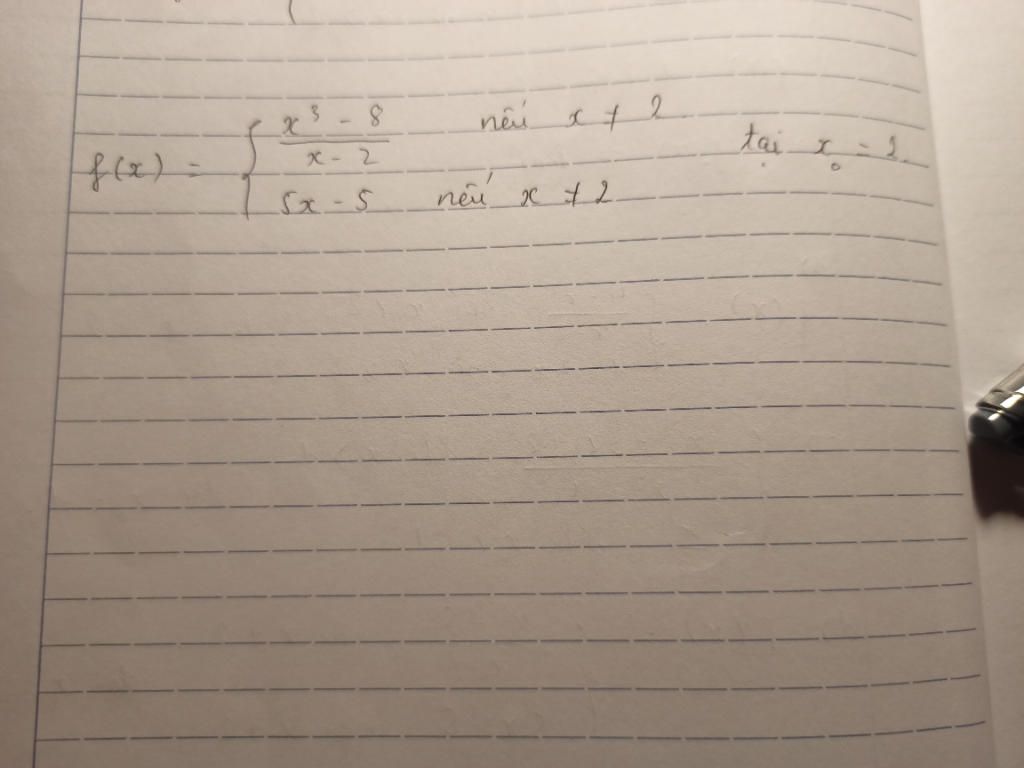 f(x) = { x³ - 8 / x - 2 nếu x ≠ 2
5x - 5 nếu x ≠ 2 tại x₀ = 2.